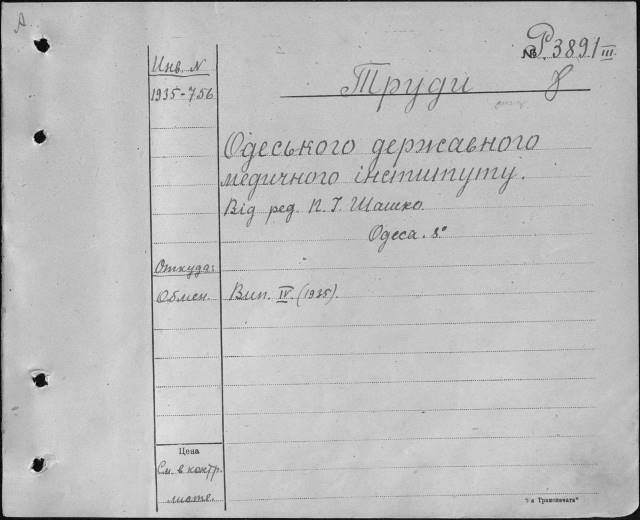 А
№ P3891 III
Инв. N
1935-756
Труди
Одеського державного
медичного інституту.
Від ред. П. І. Шашко.
Одеса. 8°
Откуда:
Обмен.
Вип. IV. (1935).
Цена
См. в контр.
листе.